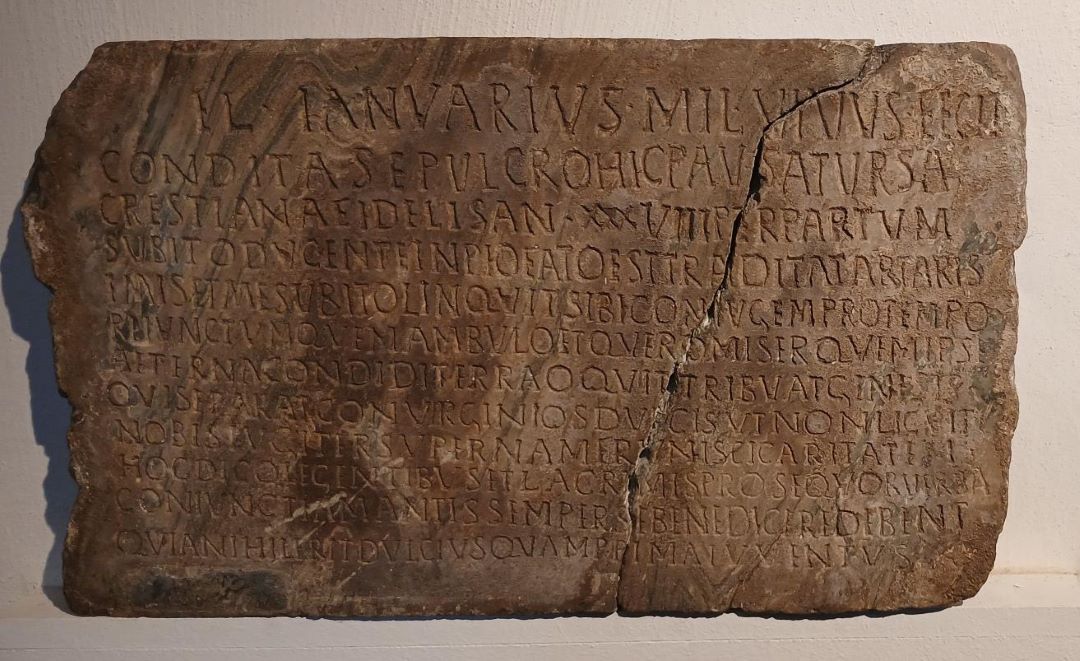 FL · IANVARIVS · MIL · VIVVS FECIT
CONDITA SEPULCRO HIC PAVSAT URSA
CRESTIANA FIDELIS AN · XXXVIII PER PARTUM
SUBITO DUCENTE INPIO FATO EST TRADITA TARTARIS
IMIS ET ME SUBITO LINQUIT SIBI CONIUGEM PRO TEMPO
RE IVNCTUM QUEM AMBULO ET QVERO MISER QVEM IPSE
AETERNA CONDIDI TERRA O QVIT TRIBVAT GENESIS
QVI SEPARAT CONVIRGINIOS DVLCIS UT NON LICUIT
NOBIS IUGITER SVPERNAM ERUNISCI CARITATEM
HOC DICO LEGENTIBUS ET LACRIMIS PROSEQUOR VERBA
CONIUNCTI AMANTIS SEMPER SE BENE DICERE DEBENT
QVIA NIHIL ERIT DVLCIUS QUAM PRIMA IUVENTUS